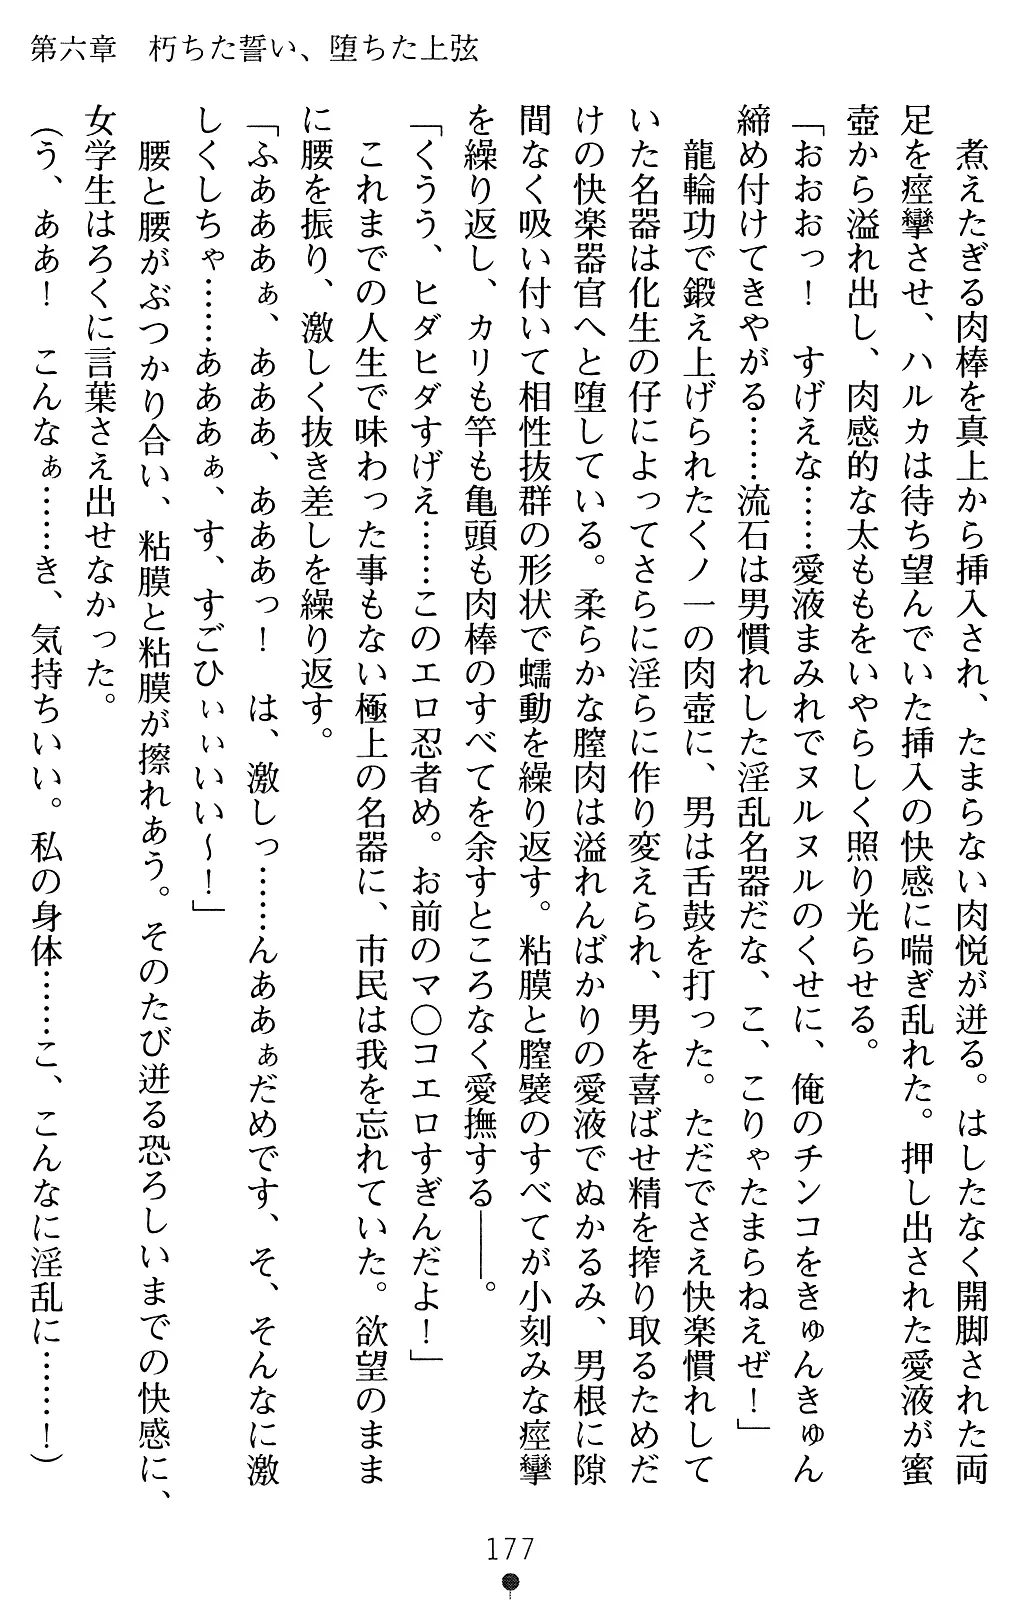 第六章　朽ちた誓い、堕ちた上弦
　煮えたぎる肉棒を真上から挿入され、たまらない肉悦が迸る。はしたなく開脚された両
足を痙攣させ、ハルカは待ち望んでいた挿入の快感に喘ぎ乱れた。押し出された愛液が蜜
壺から溢れ出し、肉感的な太ももをいやらしく照り光らせる。
「おおおっ！　すげえな……愛液まみれでヌルヌルのくせに、俺のチンコをきゅんきゅん
締め付けてきやがる……流石は男慣れした淫乱名器だな、こ、こりゃたまらねえぜ！」
　龍輪功で鍛え上げられたくノ一の肉壺に、男は舌鼓を打った。ただでさえ快楽慣れして
いた名器は化生の仔によってさらに淫らに作り変えられ、男を喜ばせ精を搾り取るためだ
けの快楽器官へと堕している。柔らかな膣肉は溢れんばかりの愛液でぬかるみ、男根に隙
間なく吸い付いて相性抜群の形状で蠕動を繰り返す。粘膜と膣襞のすべてが小刻みな痙攣
を繰り返し、カリも竿も亀頭も肉棒のすべてを余すところなく愛撫する――。
「くうう、ヒダヒダすげえ……このエロ忍者め。お前のマ〇コエロすぎんだよ！」
　これまでの人生で味わった事もない極上の名器に、市民は我を忘れていた。欲望のまま
に腰を振り、激しく抜き差しを繰り返す。
「ふああああぁ、あああ、あああっ！　は、激しっ……んああぁだめです、そ、そんなに激
しくしちゃ……ああああぁ、す、すごひぃぃいい～！」
　腰と腰がぶつかり合い、粘膜と粘膜が擦れあう。そのたび迸る恐ろしいまでの快感に、
女学生はろくに言葉さえ出せなかった。
（う、ああ！　こんなぁ……き、気持ちいい。私の身体……こ、こんなに淫乱に……！）
177